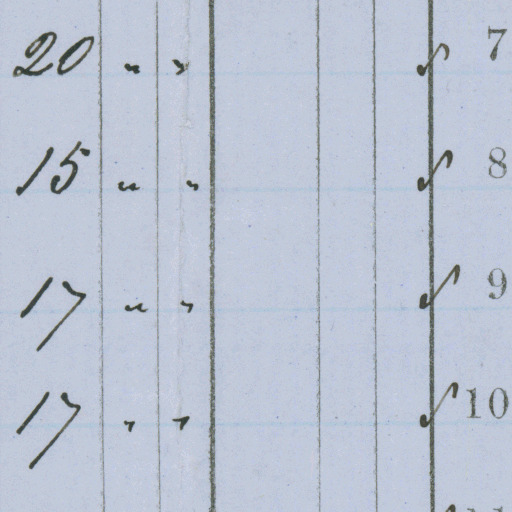 20 " " 7
15 " " 8
17 " " 9
17 " " 10